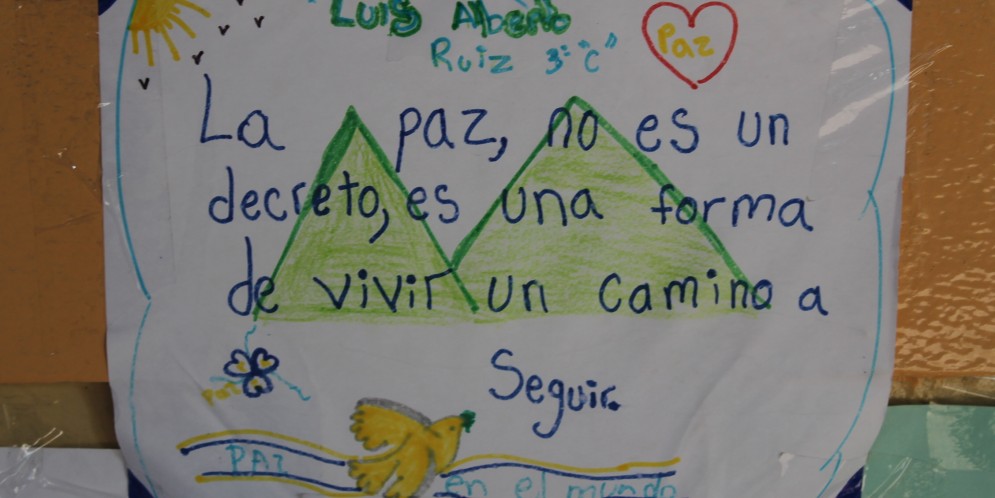 Luis Alberto
Ruiz 3º "C"
Paz
La paz, no es un
decreto, es una forma
de vivir un camino a
Seguir.
Paz
PAZ
en el mundo